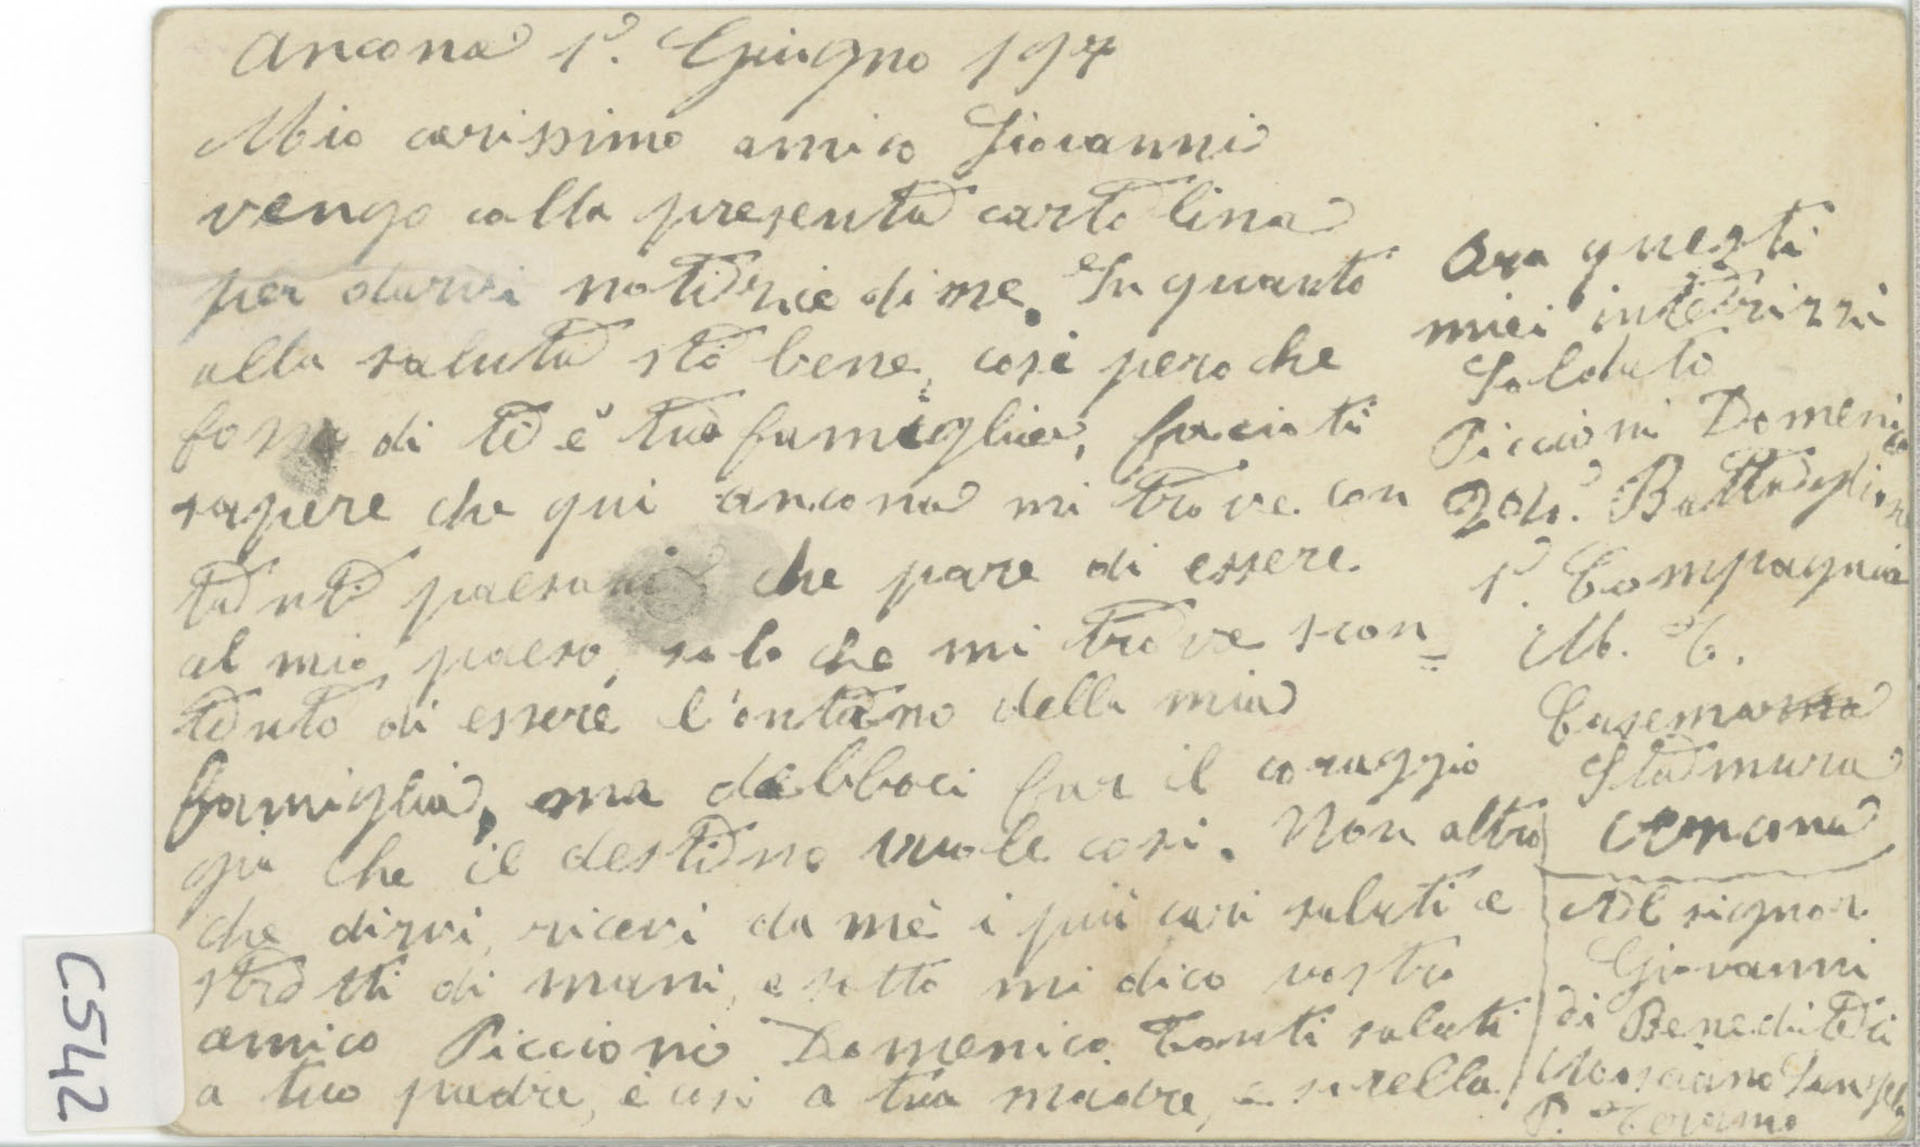 Ancona 1° Giugno 197
Mio carissimo amico Giovanni
vengo colla presenta cartolina
per darvi notizie di me. In quanto
alla saluta sto bene, cosi pero che
di te e tua famiglia, facioti
sapere che qui ancona mi trove con
tanti paesani che pare di essere
al mio paeso, solo che mi trove scon=
tento di essere l'ontano della mia
famiglia, ma debboci far il coraggio
gia che il destino vuole cosi. Non altro
che dirvi, ricevi da me i più cari saluti e
stretti di mani, e sotto mi dico vostro
amico Piccioni Domenico Tanti saluti
a tuo padre, e cosi a tua madre, e sorella
Ora questi
miei intirizzi
Soldato
Piccioni Domenico
204° Battaglione
1° Compagnia
M. T.
Casema
Stamura
Ancona
Al signor
Giovanni
di Benedittéi
Mosciano Sangelo
P. Teramo
C542